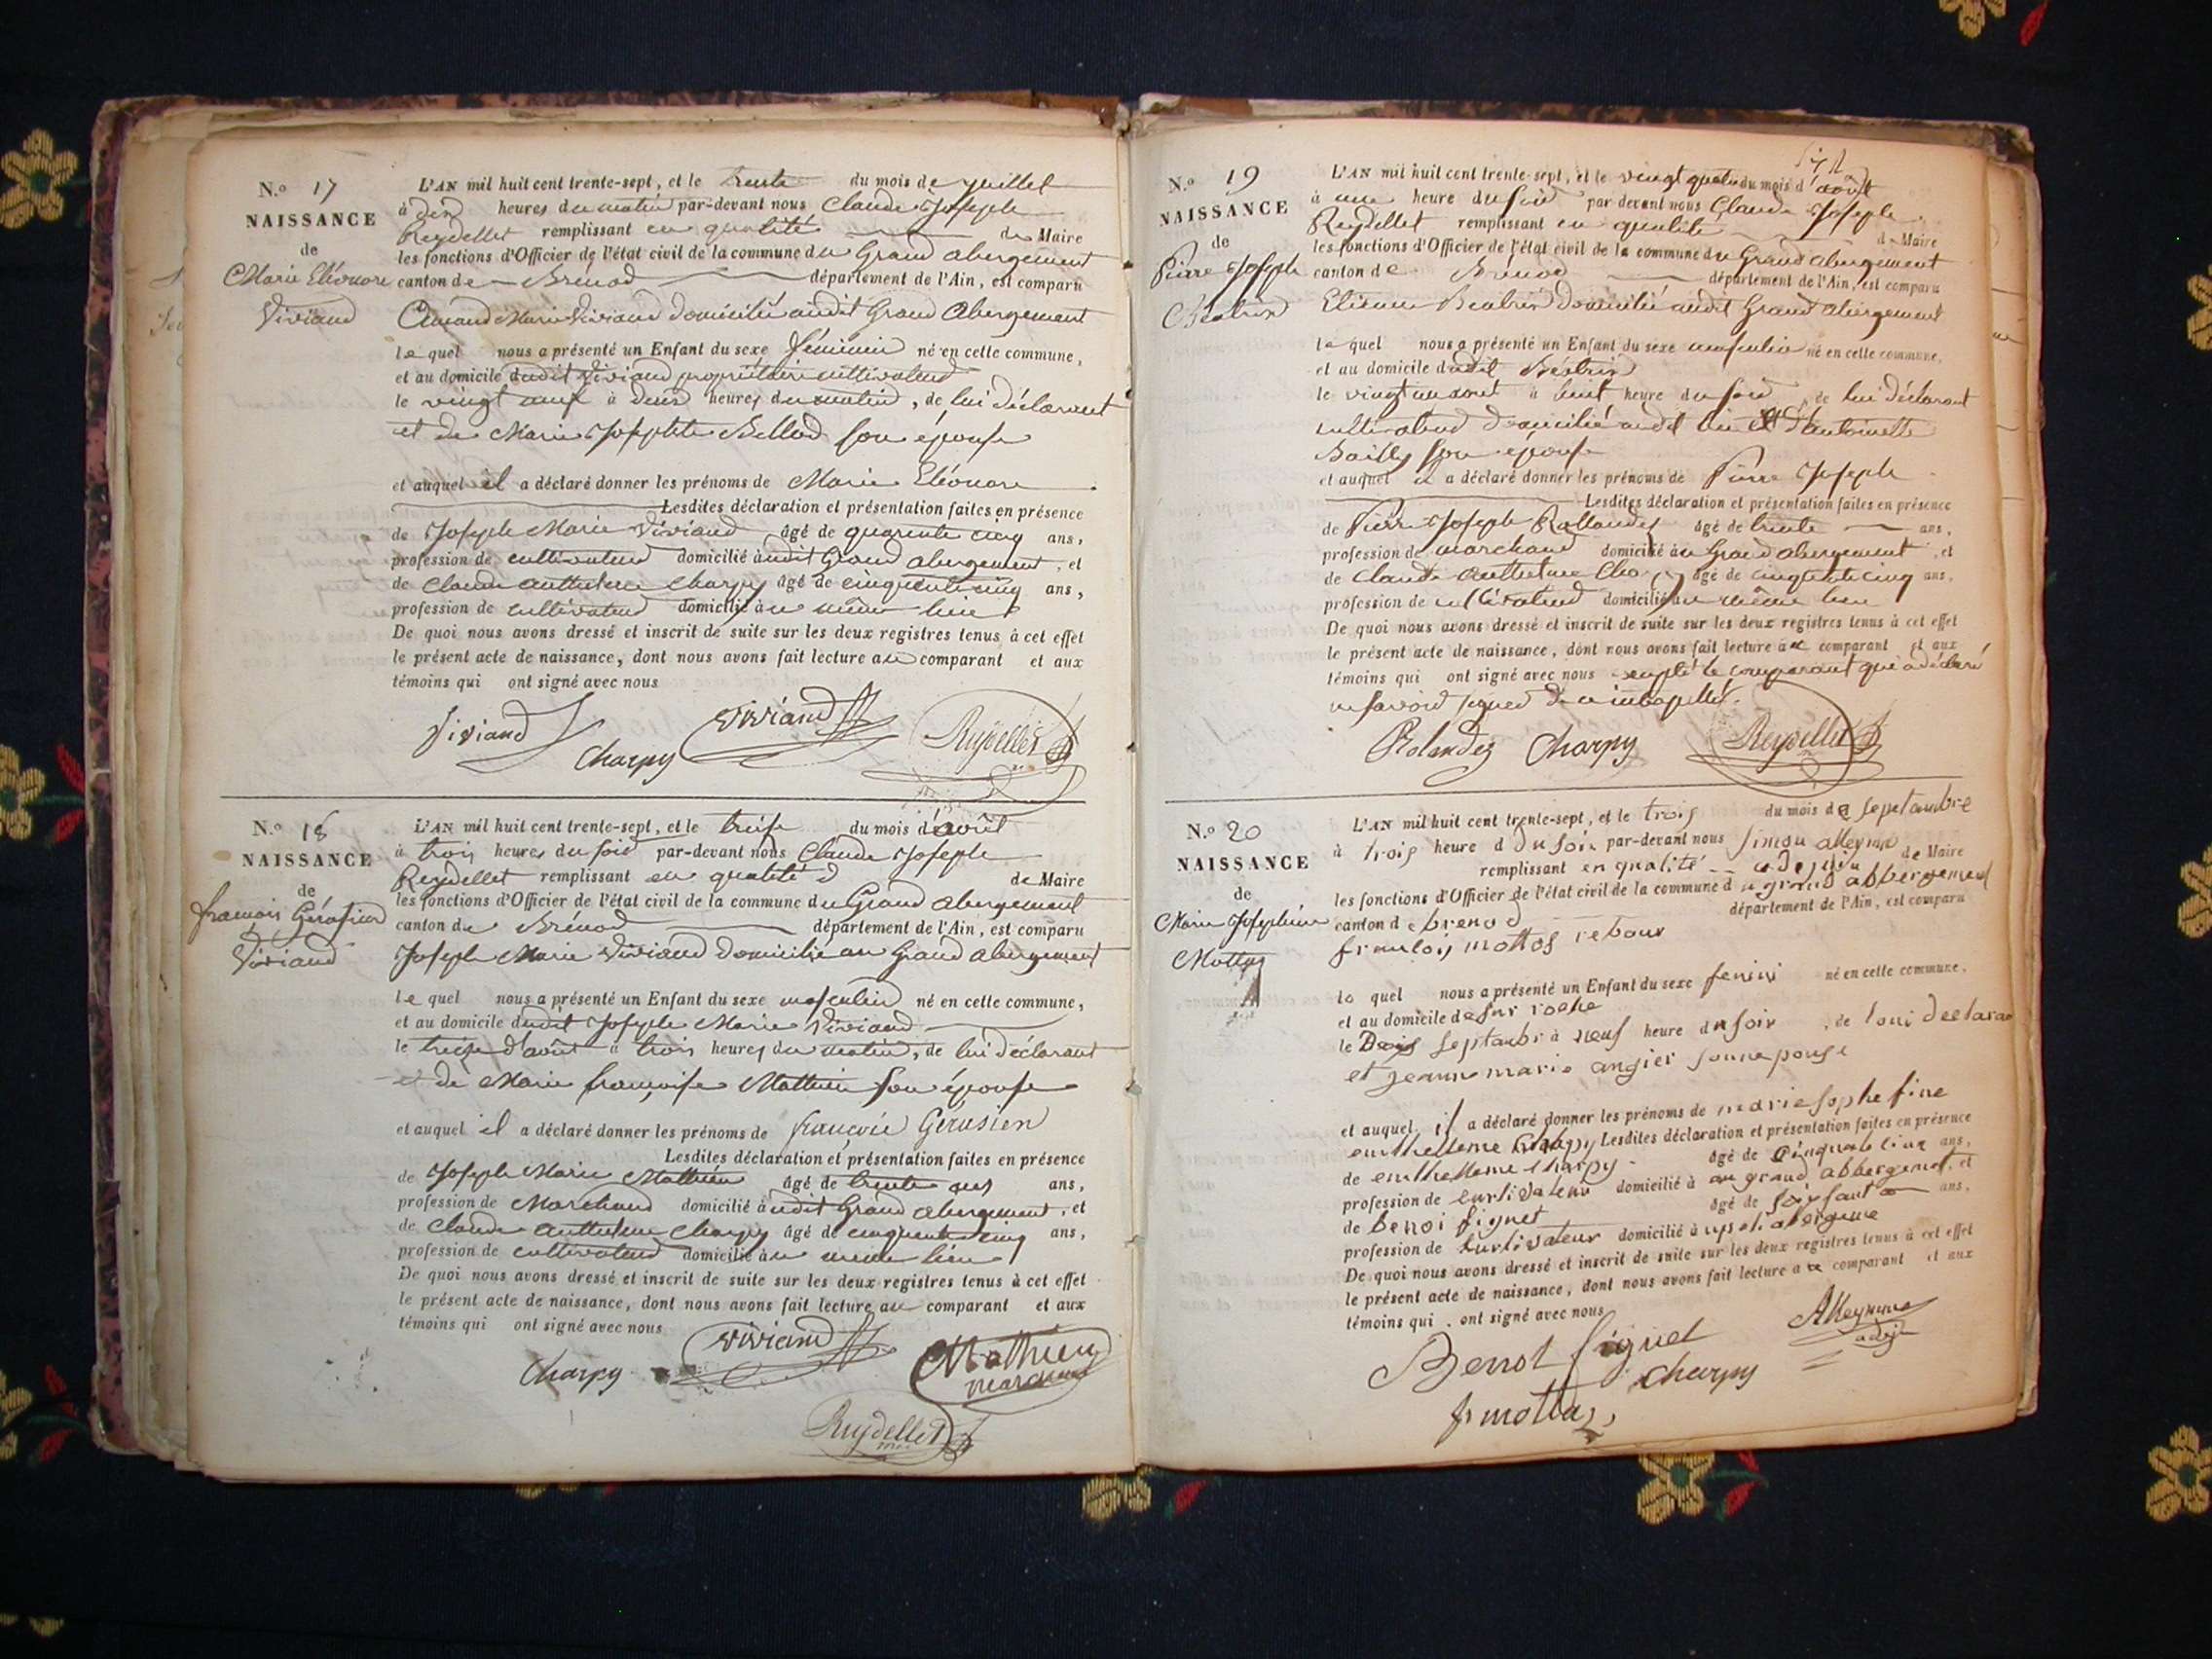 N.º 17
NAISSANCE
de
Marie Eléonore
Viviand
L'AN mil huit cent trente-sept, et le trente du mois de juillet
à dix heures du matin par-devant nous Claude Joseph
Reydellet remplissant en qualité de Maire
les fonctions d'Officier de l'état civil de la commune du Grand abergement
canton de Brénod département de l'Ain, est comparu
Amand Marie Viviand domicilié audit Grand Abergement
le quel nous a présenté un Enfant du sexe féminin né en cette commune,
et au domicile dudit Viviand propriétaire cultivateur
le vingt neuf à deux heures du matin, de lui déclarant
et de Marie Josephte Bellod son épouse
et auquel il a déclaré donner les prénoms de Marie Eléonore
Lesdites déclaration et présentation faites en présence
de Joseph Marie Viviand âgé de quarente cinq ans,
profession de cultivateur domicilié audit Grand abergement, et
de Claude Anthelme Charpy âgé de cinquante cinq ans,
profession de cultivateur domicilié au même lieu
De quoi nous avons dressé et inscrit de suite sur les deux registres tenus à cet effet
le présent acte de naissance, dont nous avons fait lecture au comparant et aux
témoins qui ont signé avec nous
Viviand Charpy Viviand Reydellet
N.º 18
NAISSANCE
de
françois Gérasien
Viviand
L'AN mil huit cent trente-sept, et le treize du mois d'août
à trois heures du soir par-devant nous Claude Joseph
Reydellet remplissant en qualité de Maire
les fonctions d'Officier de l'état civil de la commune du Grand abergement
canton de Brénod département de l'Ain, est comparu
Joseph Marie Viviand domicilié au Grand abergement
le quel nous a présenté un Enfant du sexe masculin né en cette commune,
et au domicile dudit Joseph Marie Viviand
le treize d'août à trois heures du matin, de lui déclarant
et de Marie françoise Mathieu son épouse
et auquel il a déclaré donner les prénoms de françois Gérasien
Lesdites déclaration et présentation faites en présence
de Joseph Marie Mathieu âgé de trente ans,
profession de Marchand domicilié audit Grand abergement, et
de Claude Anthelme Charpy âgé de cinquante cinq ans,
profession de cultivateur domicilié au même lieu
De quoi nous avons dressé et inscrit de suite sur les deux registres tenus à cet effet
le présent acte de naissance, dont nous avons fait lecture au comparant et aux
témoins qui ont signé avec nous
Charpy Viviand Mathieu
marchand
Reydellet
N.º 19
NAISSANCE
de
Pierre Joseph
Béatrix
L'AN mil huit cent trente-sept, et le vingt quatre du mois d'août
à une heure du soir par devant nous Claude Joseph
Reydellet remplissant en qualité de Maire
les fonctions d'Officier de l'état civil de la commune du Grand abergement
canton de Brénod département de l'Ain, est comparu
Etienne Béatrix domicilié audit Grand abergement
le quel nous a présenté un Enfant du sexe masculin né en cette commune,
et au domicile dudit Béatrix
le vingt un août à huit heure du soir, de lui déclarant
cultivateur domicilié audit lieu et d'antoinette
Bailly son épouse
et auquel il a déclaré donner les prénoms de Pierre Joseph
Lesdites déclaration et présentation faites en présence
de Pierre Joseph Rollandez âgé de trente ans,
profession de marchand domicilié au Grand abergement, et
de Claude Anthelme Charpy âgé de cinquante cinq ans,
profession de cultivateur domicilié au même lieu
De quoi nous avons dressé et inscrit de suite sur les deux registres tenus à cet effet
le présent acte de naissance, dont nous avons fait lecture au comparant et aux
témoins qui ont signé avec nous excepté le comparant qui a déclaré
ne savoir signer de ce interpellé.
Rolandez Charpy Reydellet
N.º 20
NAISSANCE
de
Marie Josephine
Mottas
L'AN mil huit cent trente-sept, et le trois du mois de septambre
à trois heure d du soir par-devant nous simon alleyme
remplissant en qualité de Maire
les fonctions d'Officier de l'état civil de la commune du grand abbergement
canton de brenod département de l'Ain, est comparu
françois mottas
le quel nous a présenté un Enfant du sexe né en cette commune,
et au domicile de sur roche
le septambr à neuf heure du soir, de loui declaran
et jeanne marie angier sonneponse
et auquel il a déclaré donner les prénoms de marie sophe fine
Lesdites déclaration et présentation faites en présence
de charpy âgé de ans,
profession de domicilié à au grand abbergemet, et
de benoi signet âgé de ans,
profession de domicilié à
De quoi nous avons dressé et inscrit de suite sur les deux registres tenus à cet effet
le présent acte de naissance, dont nous avons fait lecture a comparant et aux
témoins qui ont signé avec nous
Alleyme
Benoi signet charpy
f mottas